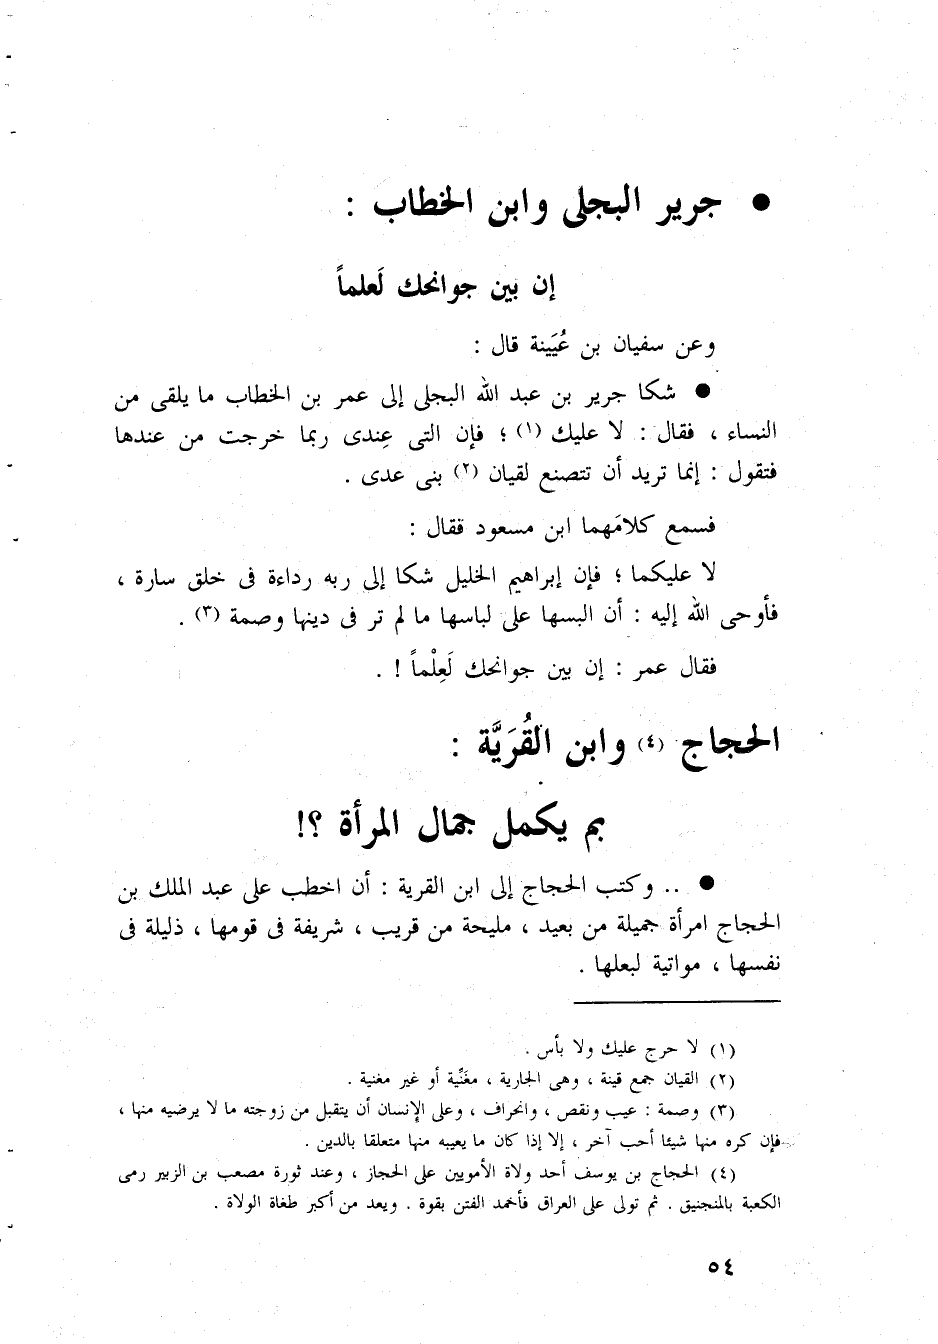 ● جرير البجلى وابن الخطاب :
إن بين جوانحك لَعلماً
وعن سفيان بن عُيَينة قال :
● شكا جرير بن عبد الله البجلى إلى عمر بن الخطاب ما يلقى من
النساء ، فقال : لا عليك (١) ؛ فإن التى عِندى ربما خرجت من عندها
فتقول : إنما تريد أن تتصنع لقيان (٢) بنى عدى .
فسمع كلامَهما ابن مسعود فقال :
لا عليكما ؛ فإن إبراهيم الخليل شكا إلى ربه رداءة فى خلق سارة ،
فأوحى الله إليه : أن البسها على لباسها ما لم تر فى دينها وصمة (٣) .
فقال عمر : إن بين جوانحك لَعِلْماً ! .
الحجاج (٤) وابن القُرَيَّة :
بم يكمل جمال المرأة ؟!
● .. وكتب الحجاج إلى ابن القرية : أن اخطب على عبد الملك بن
الحجاج امرأة جميلة من بعيد ، مليحة من قريب ، شريفة فى قومها ، ذليلة فى
نفسها ، مواتية لبعلها .
(١) لا حرج عليك ولا بأس .
(٢) القيان جمع قينة ، وهى الجارية ، مغَنِّية أو غير مغنية .
(٣) وصمة : عيب ونقص ، وانحراف ، وعلى الإنسان أن يتقبل من زوجته ما لا يرضيه منها ،
فإن كره منها شيئا أحب آخر ، إلا إذا كان ما يعيبه منها متعلقا بالدين .
(٤) الحجاج بن يوسف أحد ولاة الأمويين على الحجاز ، وعند ثورة مصعب بن الزبير رمى
الكعبة بالمنجنيق . ثم تولى على العراق فأخمد الفتن بقوة . ويعد من أكبر طغاة الولاة .
٥٤